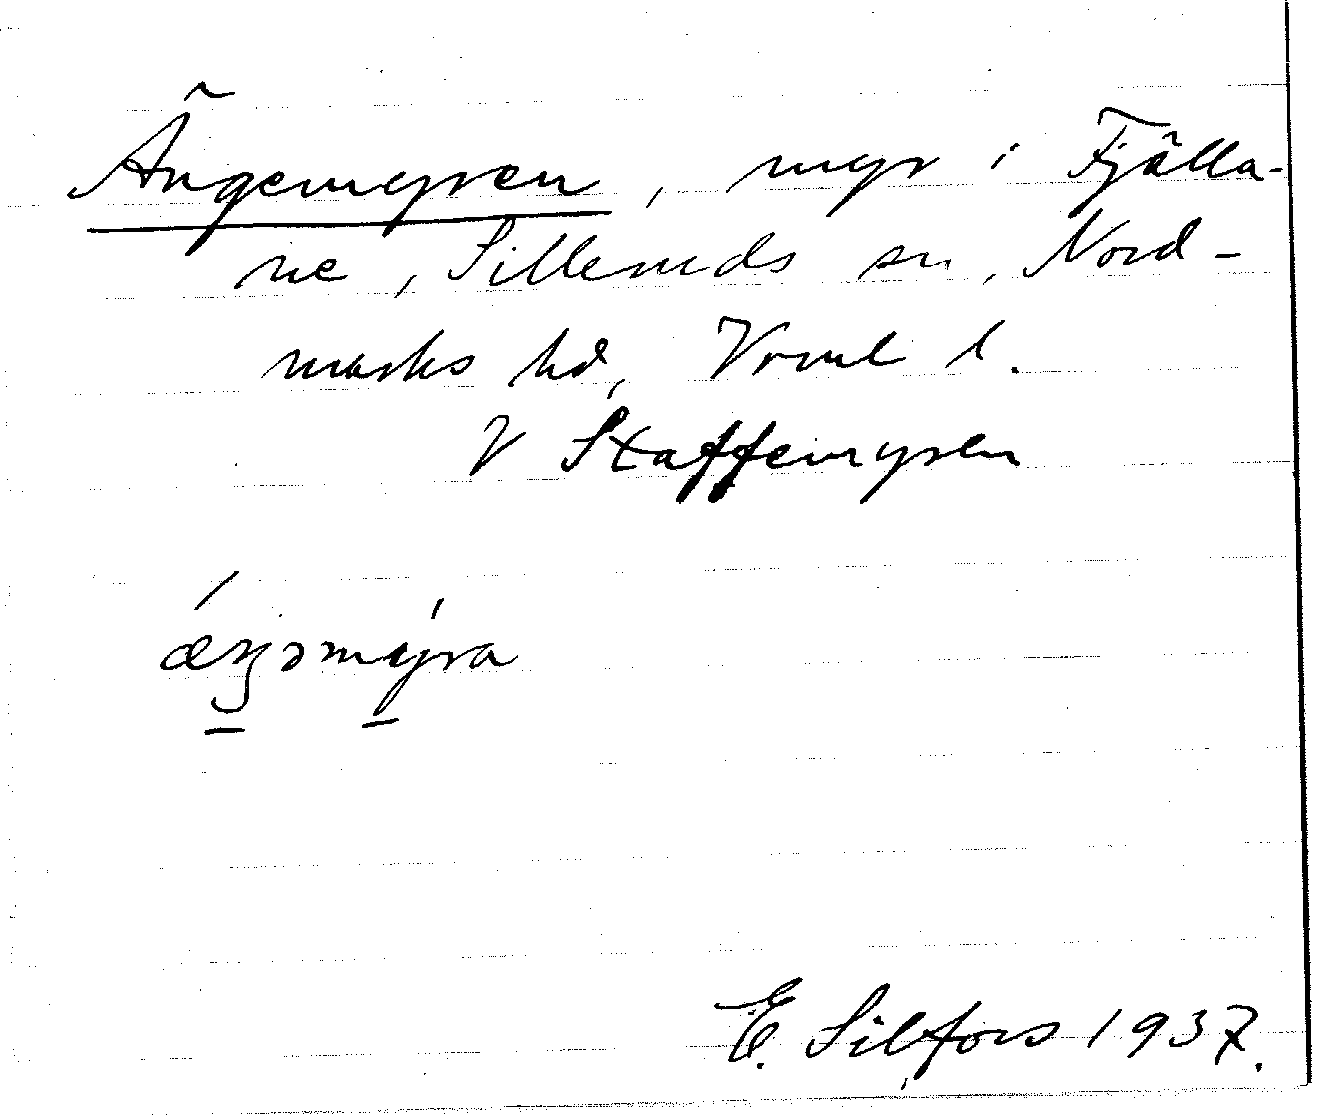 Ängemyren, myr i Fjälla-
ne, Silleruds sn, Nord-
marks hd, Vrml l.
V Staffemyren
æŋəmyra
E. Silfors 1937.